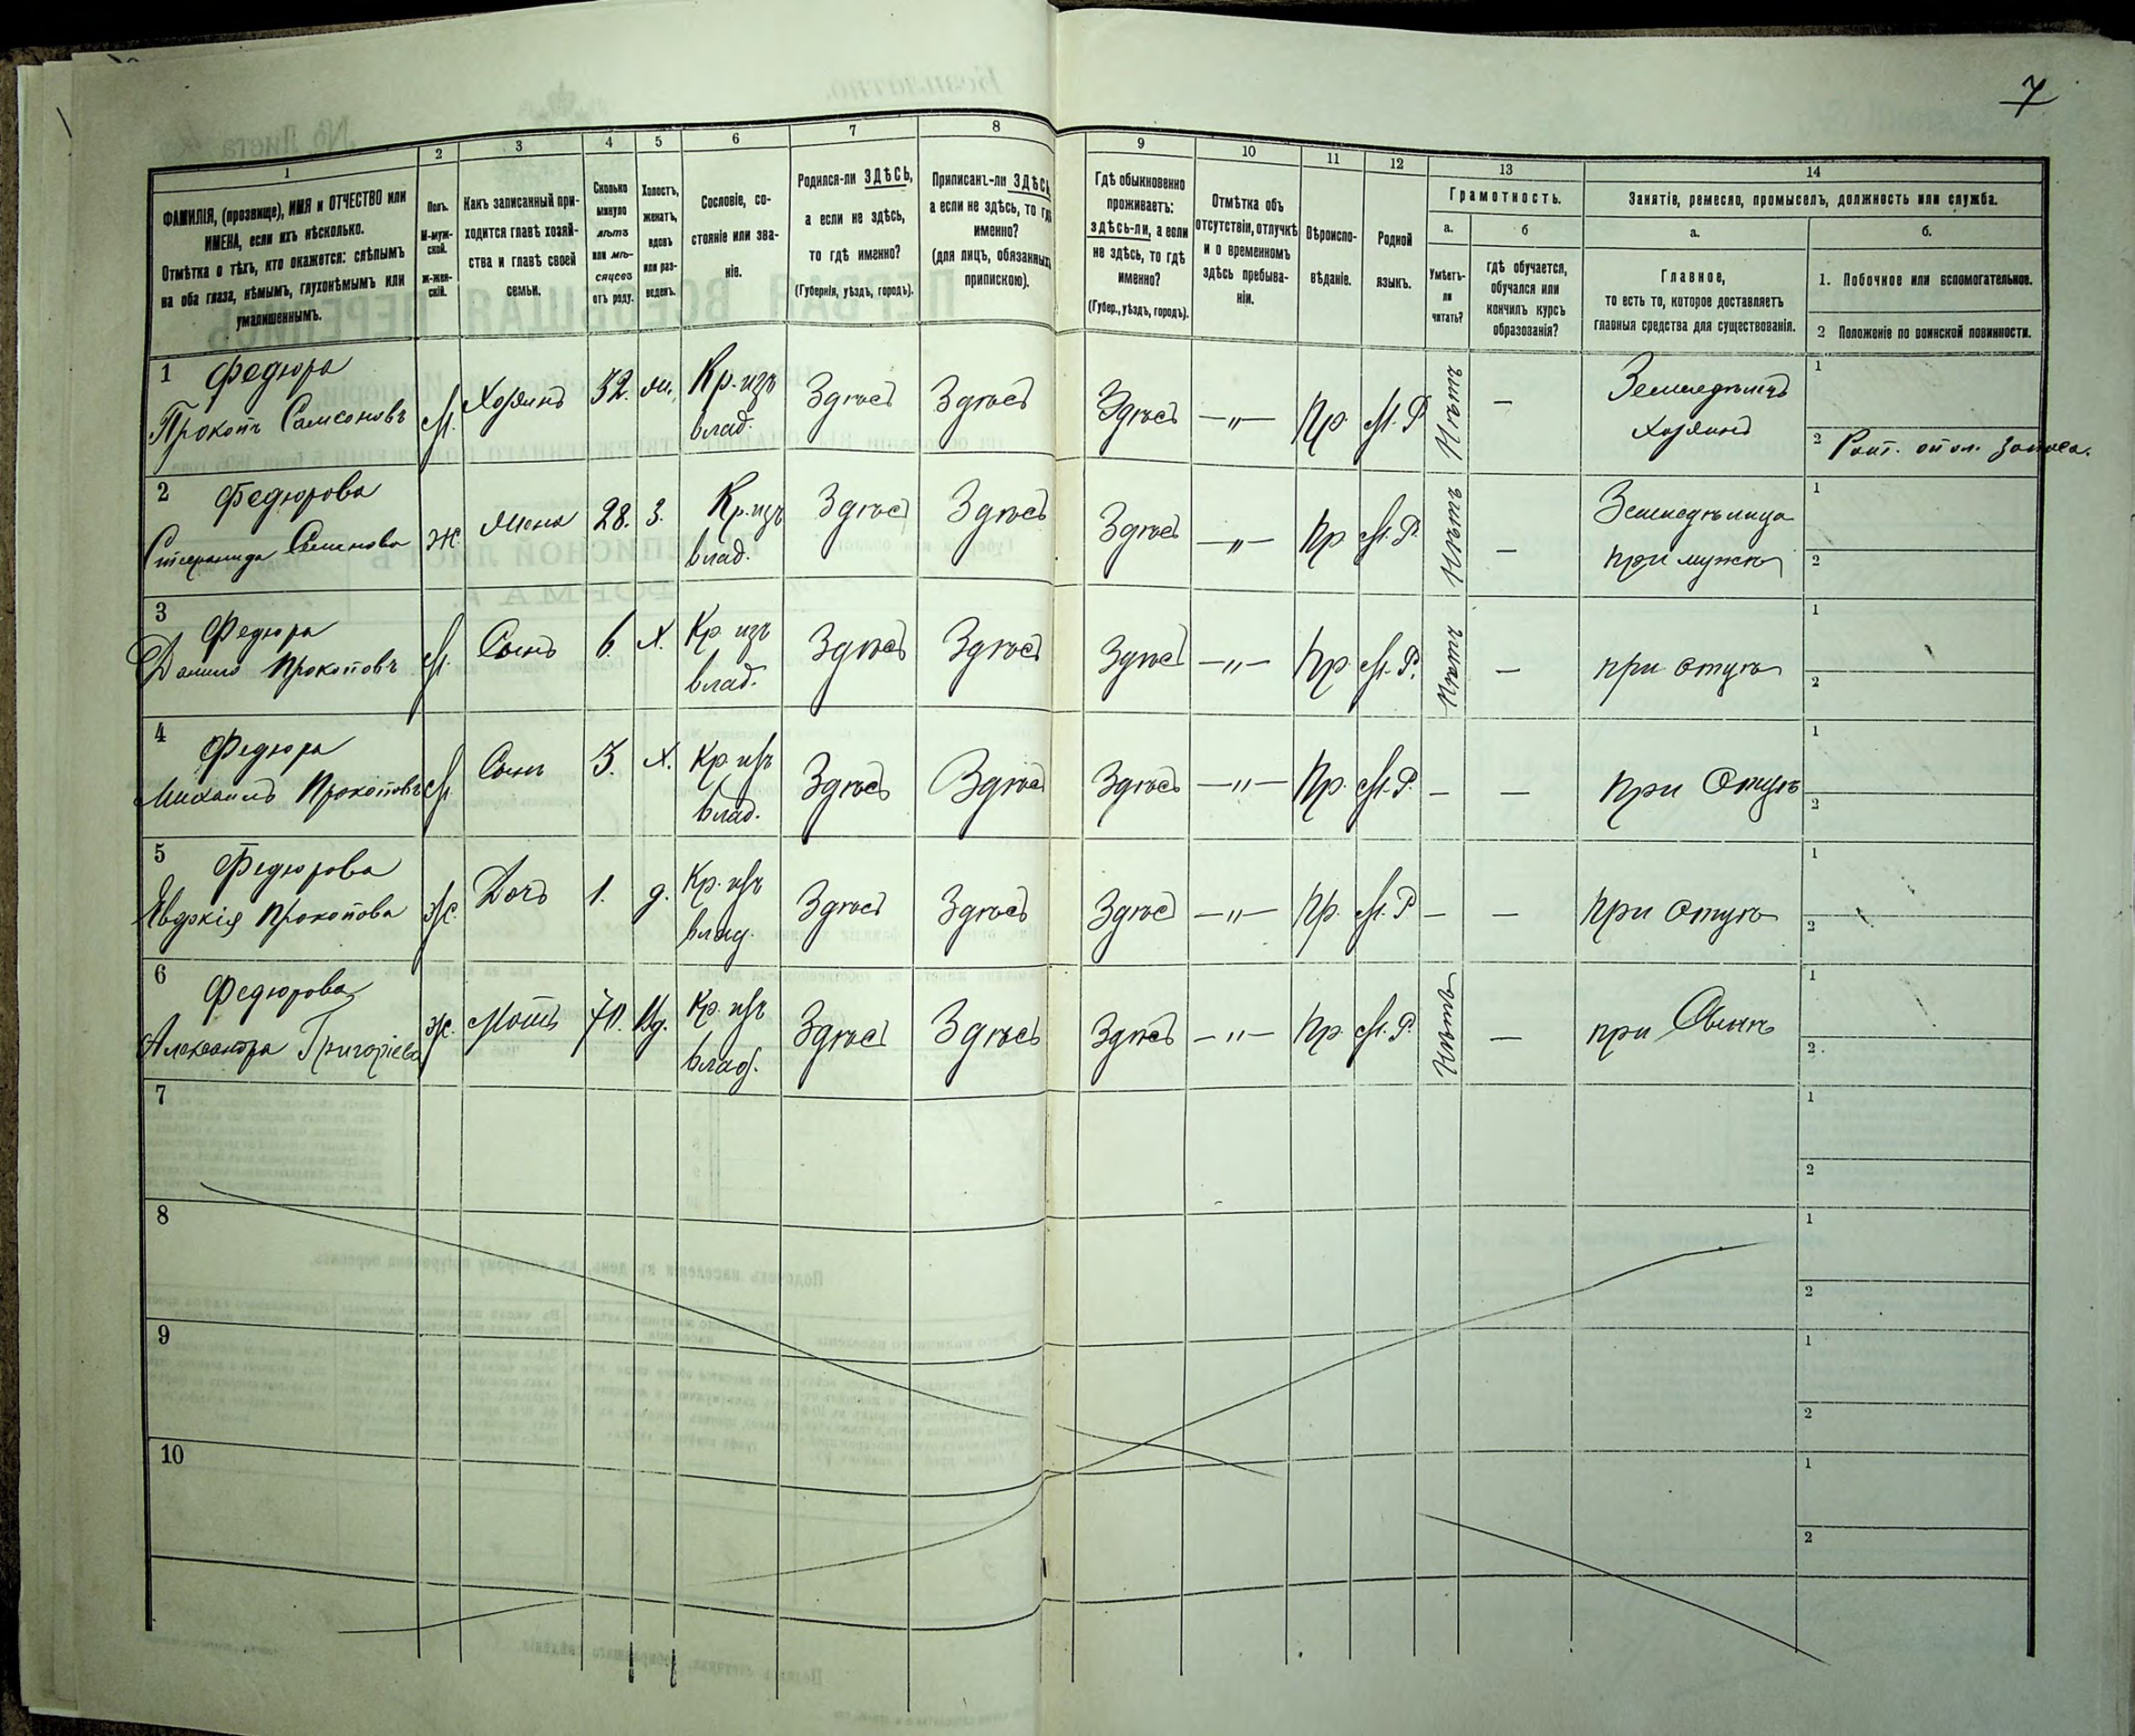 7
1 2 3 4 5 6 7 8 9 10 11 12 13 14
ФАМИЛІЯ, (прозвище), ИМЯ и ОТЧЕСТВО или
ИМЕНА, если ихъ нѣсколько.
Отмѣтка о тѣхъ, кто окажется: слѣпымъ
на оба глаза, нѣмымъ, глухонѣмымъ или
умалишеннымъ.
Полъ.
М-муж-
ской.
Ж-жен-
скій.
Какъ записанный при-
ходится главѣ хозяй-
ства и главѣ своей
семьи.
Сколько
минуло
лѣтъ
или мѣ-
сяцевъ
отъ роду.
Холостъ,
женатъ,
вдовъ
или раз-
веденъ.
Сословіе, со-
стояніе или зва-
ніе.
Родился-ли ЗДѢСЬ,
а если не здѣсь,
то гдѣ именно?
(Губернія, уѣздъ, городъ).
Приписанъ-ли ЗДѢСЬ
а если не здѣсь, то гдѣ
именно?
(для лицъ, обязанныхъ
припискою).
Гдѣ обыкновенно
проживаетъ:
здѣсь-ли, а если
не здѣсь, то гдѣ
именно?
(Губер., уѣздъ, городъ).
Отмѣтка объ
отсутствіи, отлучкѣ
и о временномъ
здѣсь пребыва-
ніи.
Вѣроиспо-
вѣданіе.
Родной
языкъ.
Грамотность.
а.
Умѣетъ-
ли
читать?
б
гдѣ обучается,
обучался или
кончилъ курсъ
образованія?
Занятіе, ремесло, промыселъ, должность или служба.
а.
Главное,
то есть то, которое доставляетъ
главныя средства для существованія.
б.
1. Побочное или вспомогательное.
2 Положеніе по воинской повинности.
1 Федюра
Прокопъ Самсоновъ М. Хозяинъ 32. ж. Кр. изъ влад. Здѣсь Здѣсь Здѣсь —„— Пр. М. Р. Нѣтъ — Земледѣлецъ Хозяинъ 1
2
2 Федюрова
Степанида Семенова Ж. Жена 28. З. Кр. изъ влад. Здѣсь Здѣсь Здѣсь —„— Пр М. Р. Нѣтъ — Земледѣлица при мужѣ 1
2
3 Федюра
Данило Прокоповъ М. Сынъ 6. Х. Кр. изъ влад. Здѣсь Здѣсь Здѣсь —„— Пр. М. Р. Нѣтъ — при отцѣ 1
2
4 Федюра
Михаилъ Прокоповъ М Сынъ 3. Х. Кр. изъ влад. Здѣсь Здѣсь Здѣсь —„— Пр. М. Р. — — при Отцѣ 1
2
5 Федюрова
Явдокія Прокопова Ж. Дочь 1. д. Кр. изъ влад. Здѣсь Здѣсь Здѣсь —„— Пр. М. Р — — при отцѣ 1
2
6 Федюрова
Александра Григоріева Ж. Мать 70. Вд. Кр. изъ влад. Здѣсь Здѣсь Здѣсь —„— Пр М. Р. Нѣтъ — при Сынѣ 1
2.
7 1
2
8 1
2
9 1
2
10 1
2